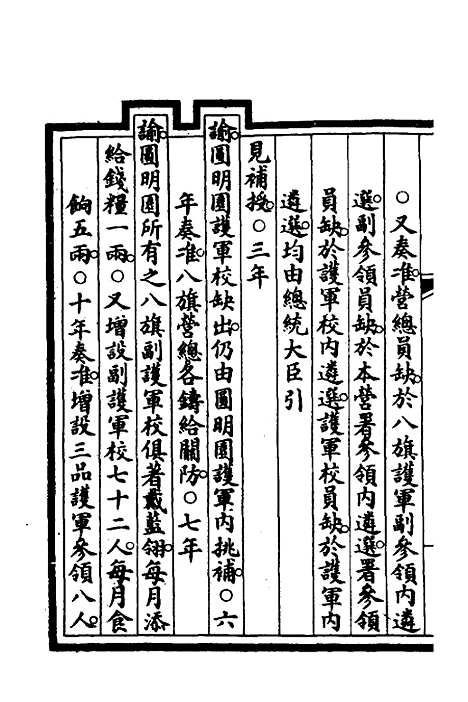 ○又奏准營總員缺。於八旗護軍副參領內遴
選。副參領員缺。於本營署參領內遴選。署參領
員缺。於護軍校內遴選。護軍校員缺。於護軍內
遴選。均由總統大臣引
見補授。○三年
諭圓明園護軍校缺出。仍由圓明園護軍內挑補。○六
年奏准。八旗營總各鑄給關防。○七年
諭圓明園所有之八旗副護軍校俱著戴藍翎。每月添
給錢糧一兩。○又增設副護軍校七十二人。每月食
餉五兩。○十年奏准。增設三品護軍參領八人。